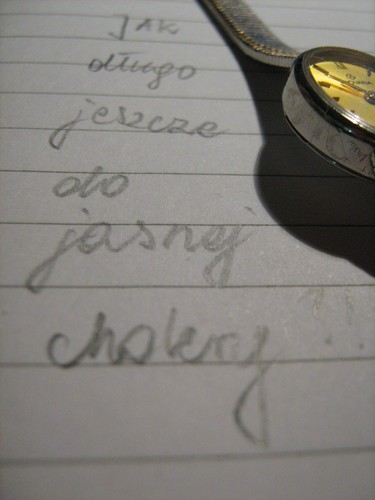 Jak
długo
jeszcze
do
jasnej
cholery ?!...